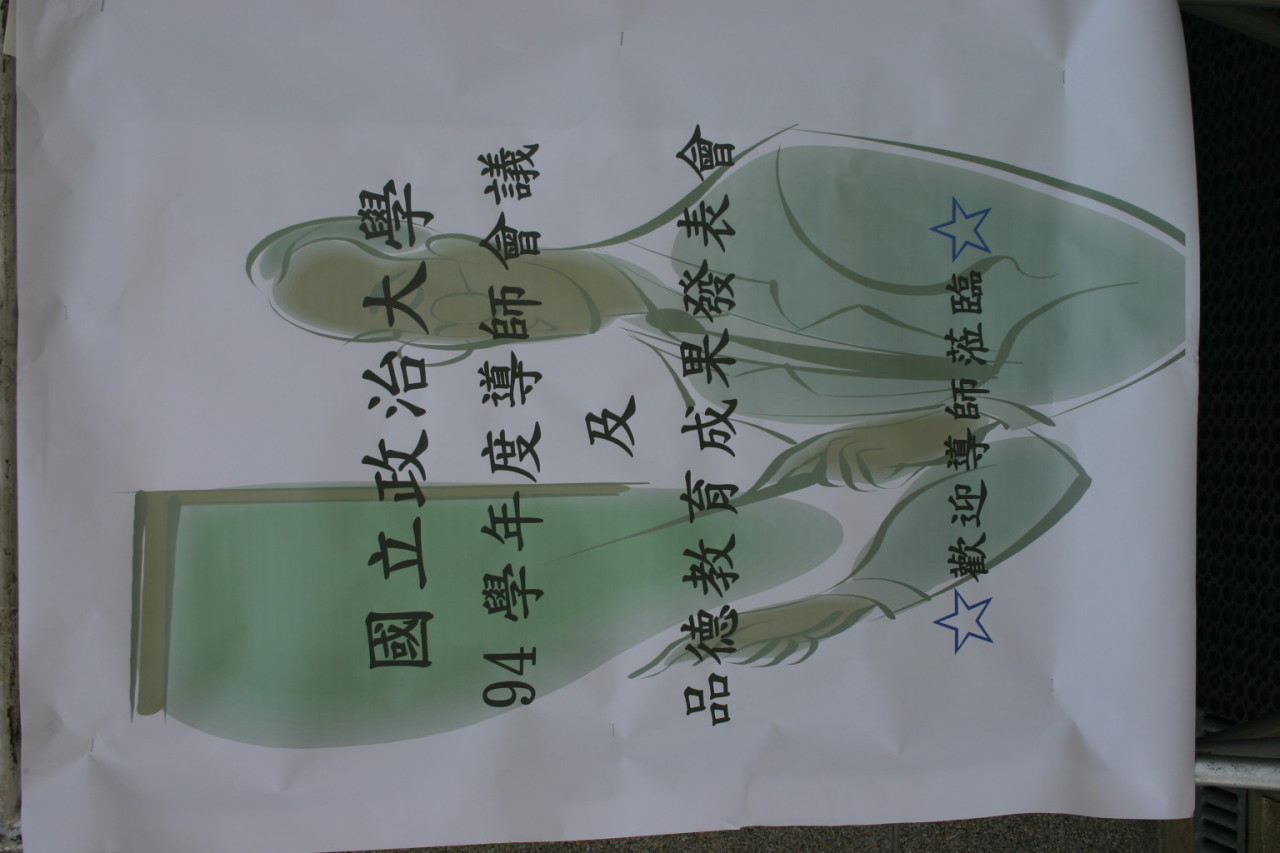 國立政治大學
94 學年度導師會議
及
品德教育成果發表會
☆歡迎導師蒞臨☆